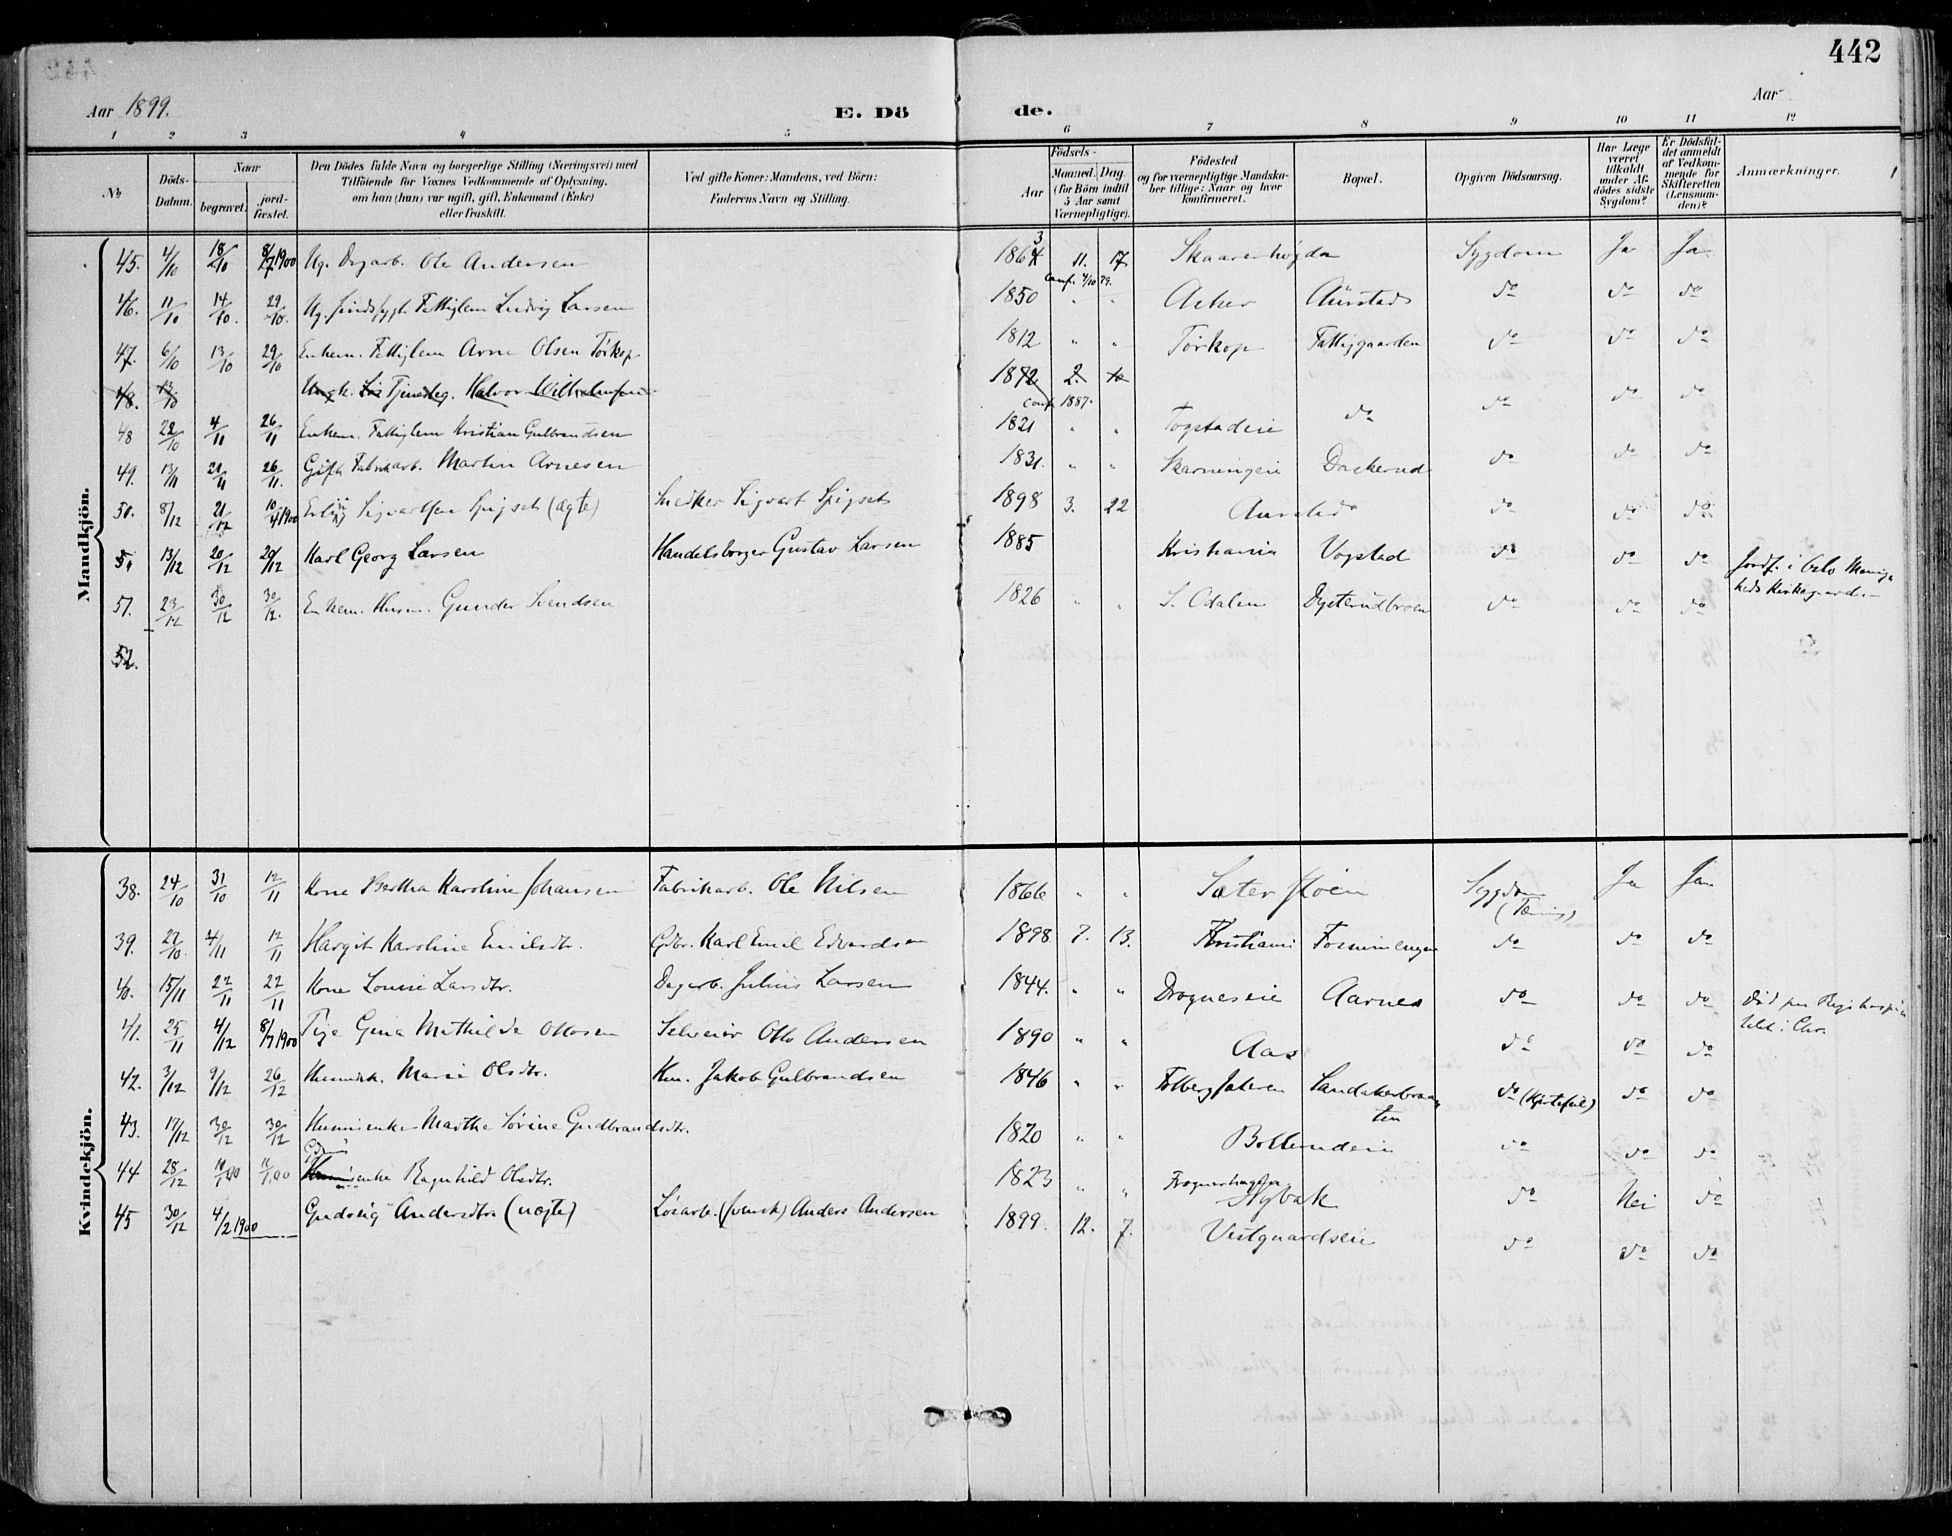 442
Aar 1899. E. Dö de. Aar
1 2 3 4 5 6 7 8 9 10 11 12
No
Döds-Datum.
Naar begravet. jord-fæstet.
Den Dödes fulde Navn og borgerlige Stilling (Næringsvei) med Tilföiende for Voxnes Vedkommende af Oplysning, om han (hun) var ugift, gift, Enkemand (Enke) eller fraskilt.
Ved gifte Koner: Mandens, ved Börn: Faderens Navn og Stilling.
Födsels- Aar Maaned. Dag. (for Börn indtil 5 Aar samt Værnepligtige).
Födested og for værnepligtige Mandskaber tillige: Naar og hvor konfirmeret.
Bopæl.
Opgiven Dödsaarsag.
Har Læge været tilkaldt under Afdödes sidste Sygdom?
Er Dödsfaldet anmeldt af Vedkommende for Skifteretten (Lensmanden)?
Anmærkninger.
Mandkjön.
45. 4/10 18/10 8/7 1900 Ug. Dagarb. Ole Andersen 1864 3 11. 17. Skaarerhøgda Sygdom Ja Ja
conf. 4/10 79.
46. 11/10 14/10. 29/10. Ug. sindssygt Fattiglem Ludvig Larsen 1850 " " Aker Aurstad do do do
47. 6/10 13/10 29/10 Enkem. Fattiglem Arne Olsen Tørkop 1812 " " Tørkop Fattiggaarden do do do
48. 13/10 Ungk. Tjenesteg. Halvor Wilhelmsen 1872 2. 10
conf. 1887.
48 22/10 4/11 26/11 Enkem. Fattiglem Kristian Gulbrandsen 1821 " " Togstadeie do do do do
49. 13/11 21/11 26/11. Gift Fabrikarb. Martin Arnesen 1831. " " Skarningeie Dakerud do do do
50. 8/12 21/12 10/4 1900 Erling Sigvartsen Spigset (ægte) Snedker Sigvart Spigset 1898 3. 22 Aurstad do do do
51 13/12 20/12 20/12 Karl Georg Larsen Handelsborger Gustav Larsen 1885 Kristiania Vogstad do do do Jordf. i Oslo Menig
heds Kirkegaard.
51. 23/12 30/12 30/12. Enkem. Husm. Gunder Svendsen 1826 " " S. Odalen Dysterudbroen do do do
52.
Kvindekjön.
38. 24/10 31/10 12/11 Kone Bertha Karoline Johansen Fabrikarb. Ole Nilsen 1866 " " Sæter Sygdom Ja Ja
(Tæring)
39. 27/10. 4/11 12/11 Margit Karoline Emilsdtr. Gdbr. Karl Emil Edvardsen 1898 7. 13. Kristiania Fossumengen do do do
40. 15/11 22/11 22/11 Kone Louise Larsdtr. Dagarb. Julius Larsen 1844. " " Drogneseie Aarnes do do do Död paa Rigshospi
talet i Chr.
41. 25/11 4/12 8/7 1900 Pige Gina Mathilde Ottosen Selveier Otto Andersen 1890 " " Aas do do do
42. 3/12 9/12 26/12 Husmk. Marie Olsdtr. Hm. Jakob Gulbrandsen 1846 " " Sandakerbraa
ten do (Hjertefeil) do do
43. 17/12 30/12 30/12 Husmenke Marthe Sørine Gudbrandsdtr. 1820 " " Bollerudeie do do do
44 28/12 10/1 00 10/1 00 Gdm
Husmenke Ragnhild Olsdtr. 1823 " " Nybak do Nei do
45 30/12 4/2 1900 Gudvig Andersdtr. (uægte) Løsarb. (svensk) Anders Andersen 1899. 12. 7. Vestgaardseie do do do